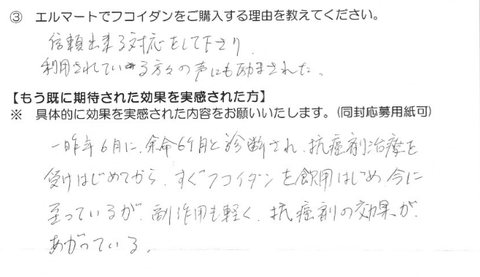 ③ エルマートでフコイダンをご購入する理由を教えてください。
信頼出来る対応をして下さり、
利用されている方々の声にも励まされた。
【もう既に期待された効果を実感された方】
※ 具体的に効果を実感された内容をお願いいたします。(同封応募用紙可)
一昨年6月に、余命6ケ月と診断され、抗癌剤治療を
受けはじめてから、すぐフコイダンを飲用はじめ、今に
至っているが、副作用も軽く、抗癌剤の効果が
あがっている。